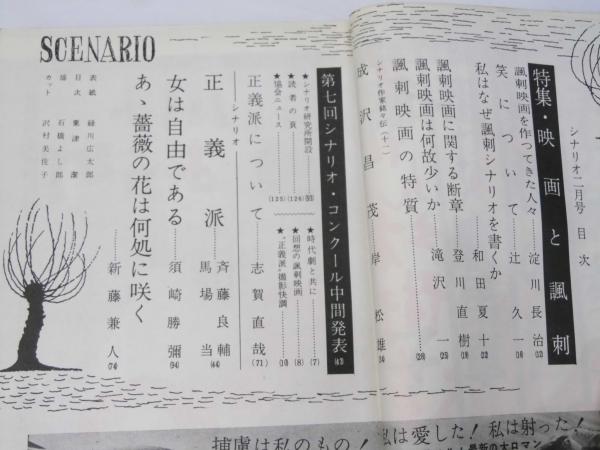 シナリオ二月号 目次
特集・映画と諷刺
諷刺映画を作ってきた人々……淀川長治(12)
笑について……辻久一(16)
私はなぜ諷刺シナリオを書くか……和田夏十(22)
諷刺映画に関する断章……登川直樹(18)
諷刺映画は何故少いか……滝沢一(25)
諷刺映画の特質……(28)
シナリオ作家銘々伝(十一)
成沢昌茂……岸松雄
第七回シナリオ・コンクール中間発表(43)
★シナリオ研究所開設
★読者の頁……(126)
★協会ニュース……(125)
★時代劇と共に……(7)
★回想の諷刺映画……(8)
★“正義派”撮影快調……(10)
正義派について……志賀直哉(71)
シナリオ
正義派……斉藤良輔 馬場当(44)
女は自由である……須崎勝彌(94)
あゝ薔薇の花は何処に咲く……新藤兼人(74)
SCENARIO
表紙 緑川広太郎
目次 粟津潔
扉 石橋よし郎
カット 沢村美佐子
捕虜は私のもの!
私は愛した!私は射った!
最新の大ロマン